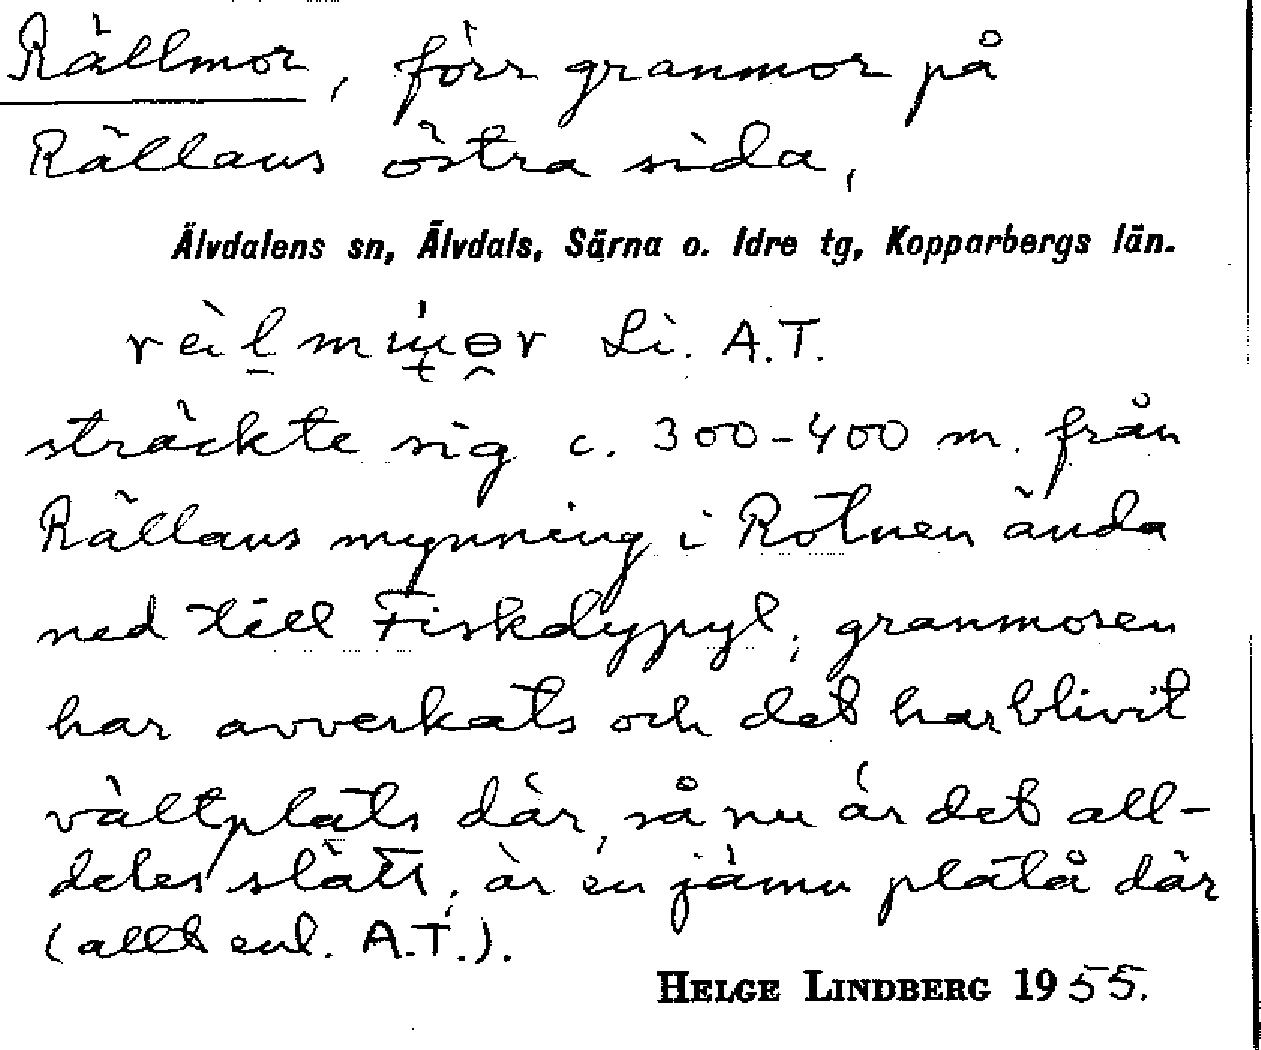 Rällmor, förr granmor på
Rällans östra sida,
Älvdalens sn, Älvdals, Särna o. Idre tg, Kopparbergs län.
Li. A.T.
sträckte sig c. 300-400 m. från
Rällans mynning i Rotnen ända
ned till Fiskdypyl; granmoren
har avverkats och det har blivit
vältplats där, så nu är det all-
deles slätt; är en jämn platå där
(allt enl. A.T.).
HELGE LINDBERG 1955.